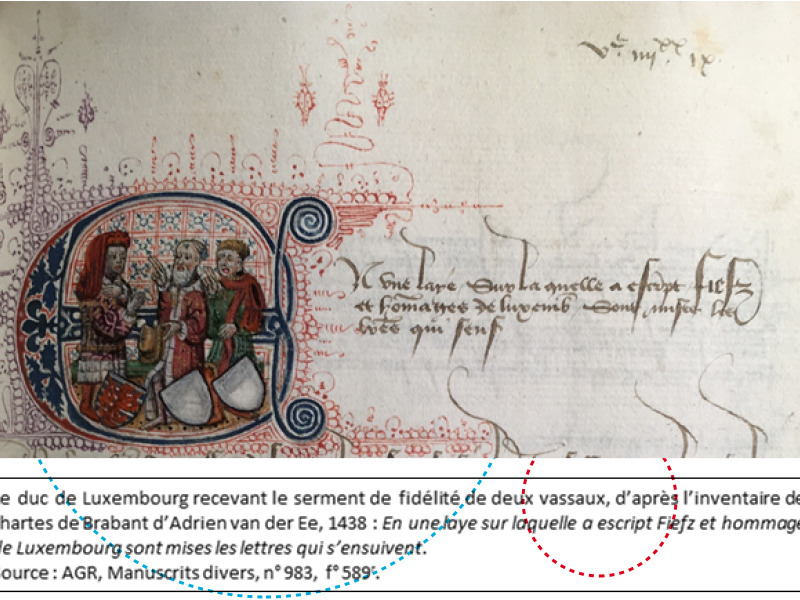 Vᶜ iiijˣˣ ix
EN vne laye Sur la quelle a escript Fiefz
et hom̄ages de luxemb̄ Sont mises les
lr̄es qui sens
e duc de Luxembourg recevant le serment de fidélité de deux vassaux, d’après l’inventaire de
hartes de Brabant d’Adrien van der Ee, 1438 : En une laye sur laquelle a escript Fiefz et hommage
de Luxembourg sont mises les lettres qui s’ensuivent.
ource : AGR, Manuscrits divers, n° 983, f° 589ʳ.